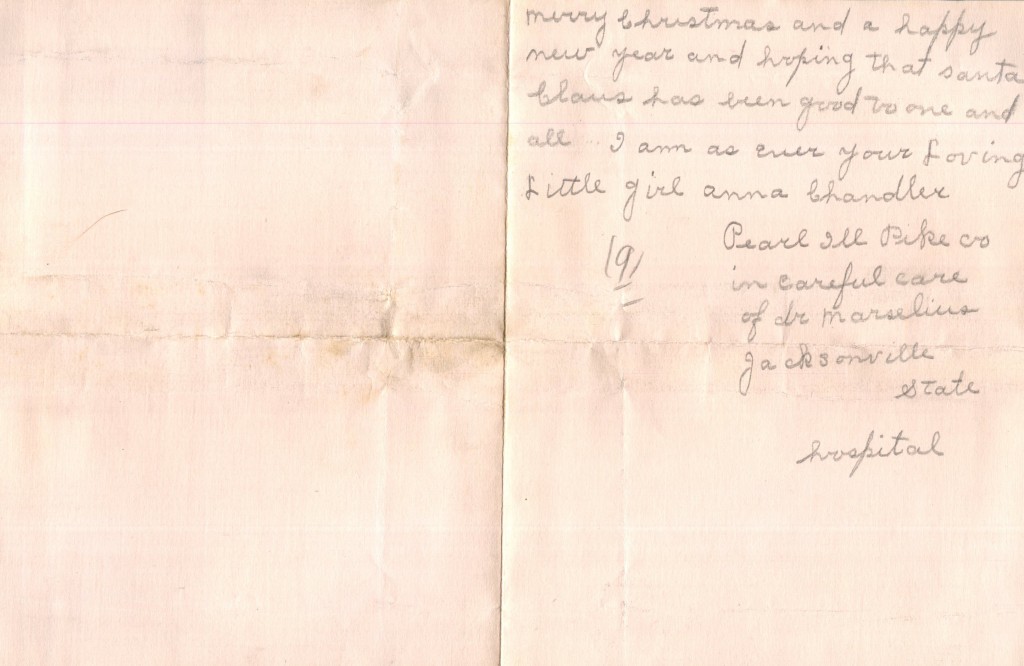 merry Christmas and a happy
new year and hoping that santa
Claus has been good to one and
all I am as ever your Loving
Little girl anna Chandler
Pearl Ill Pike co
in careful care
of dr marselius
Jacksonville
state
hospital